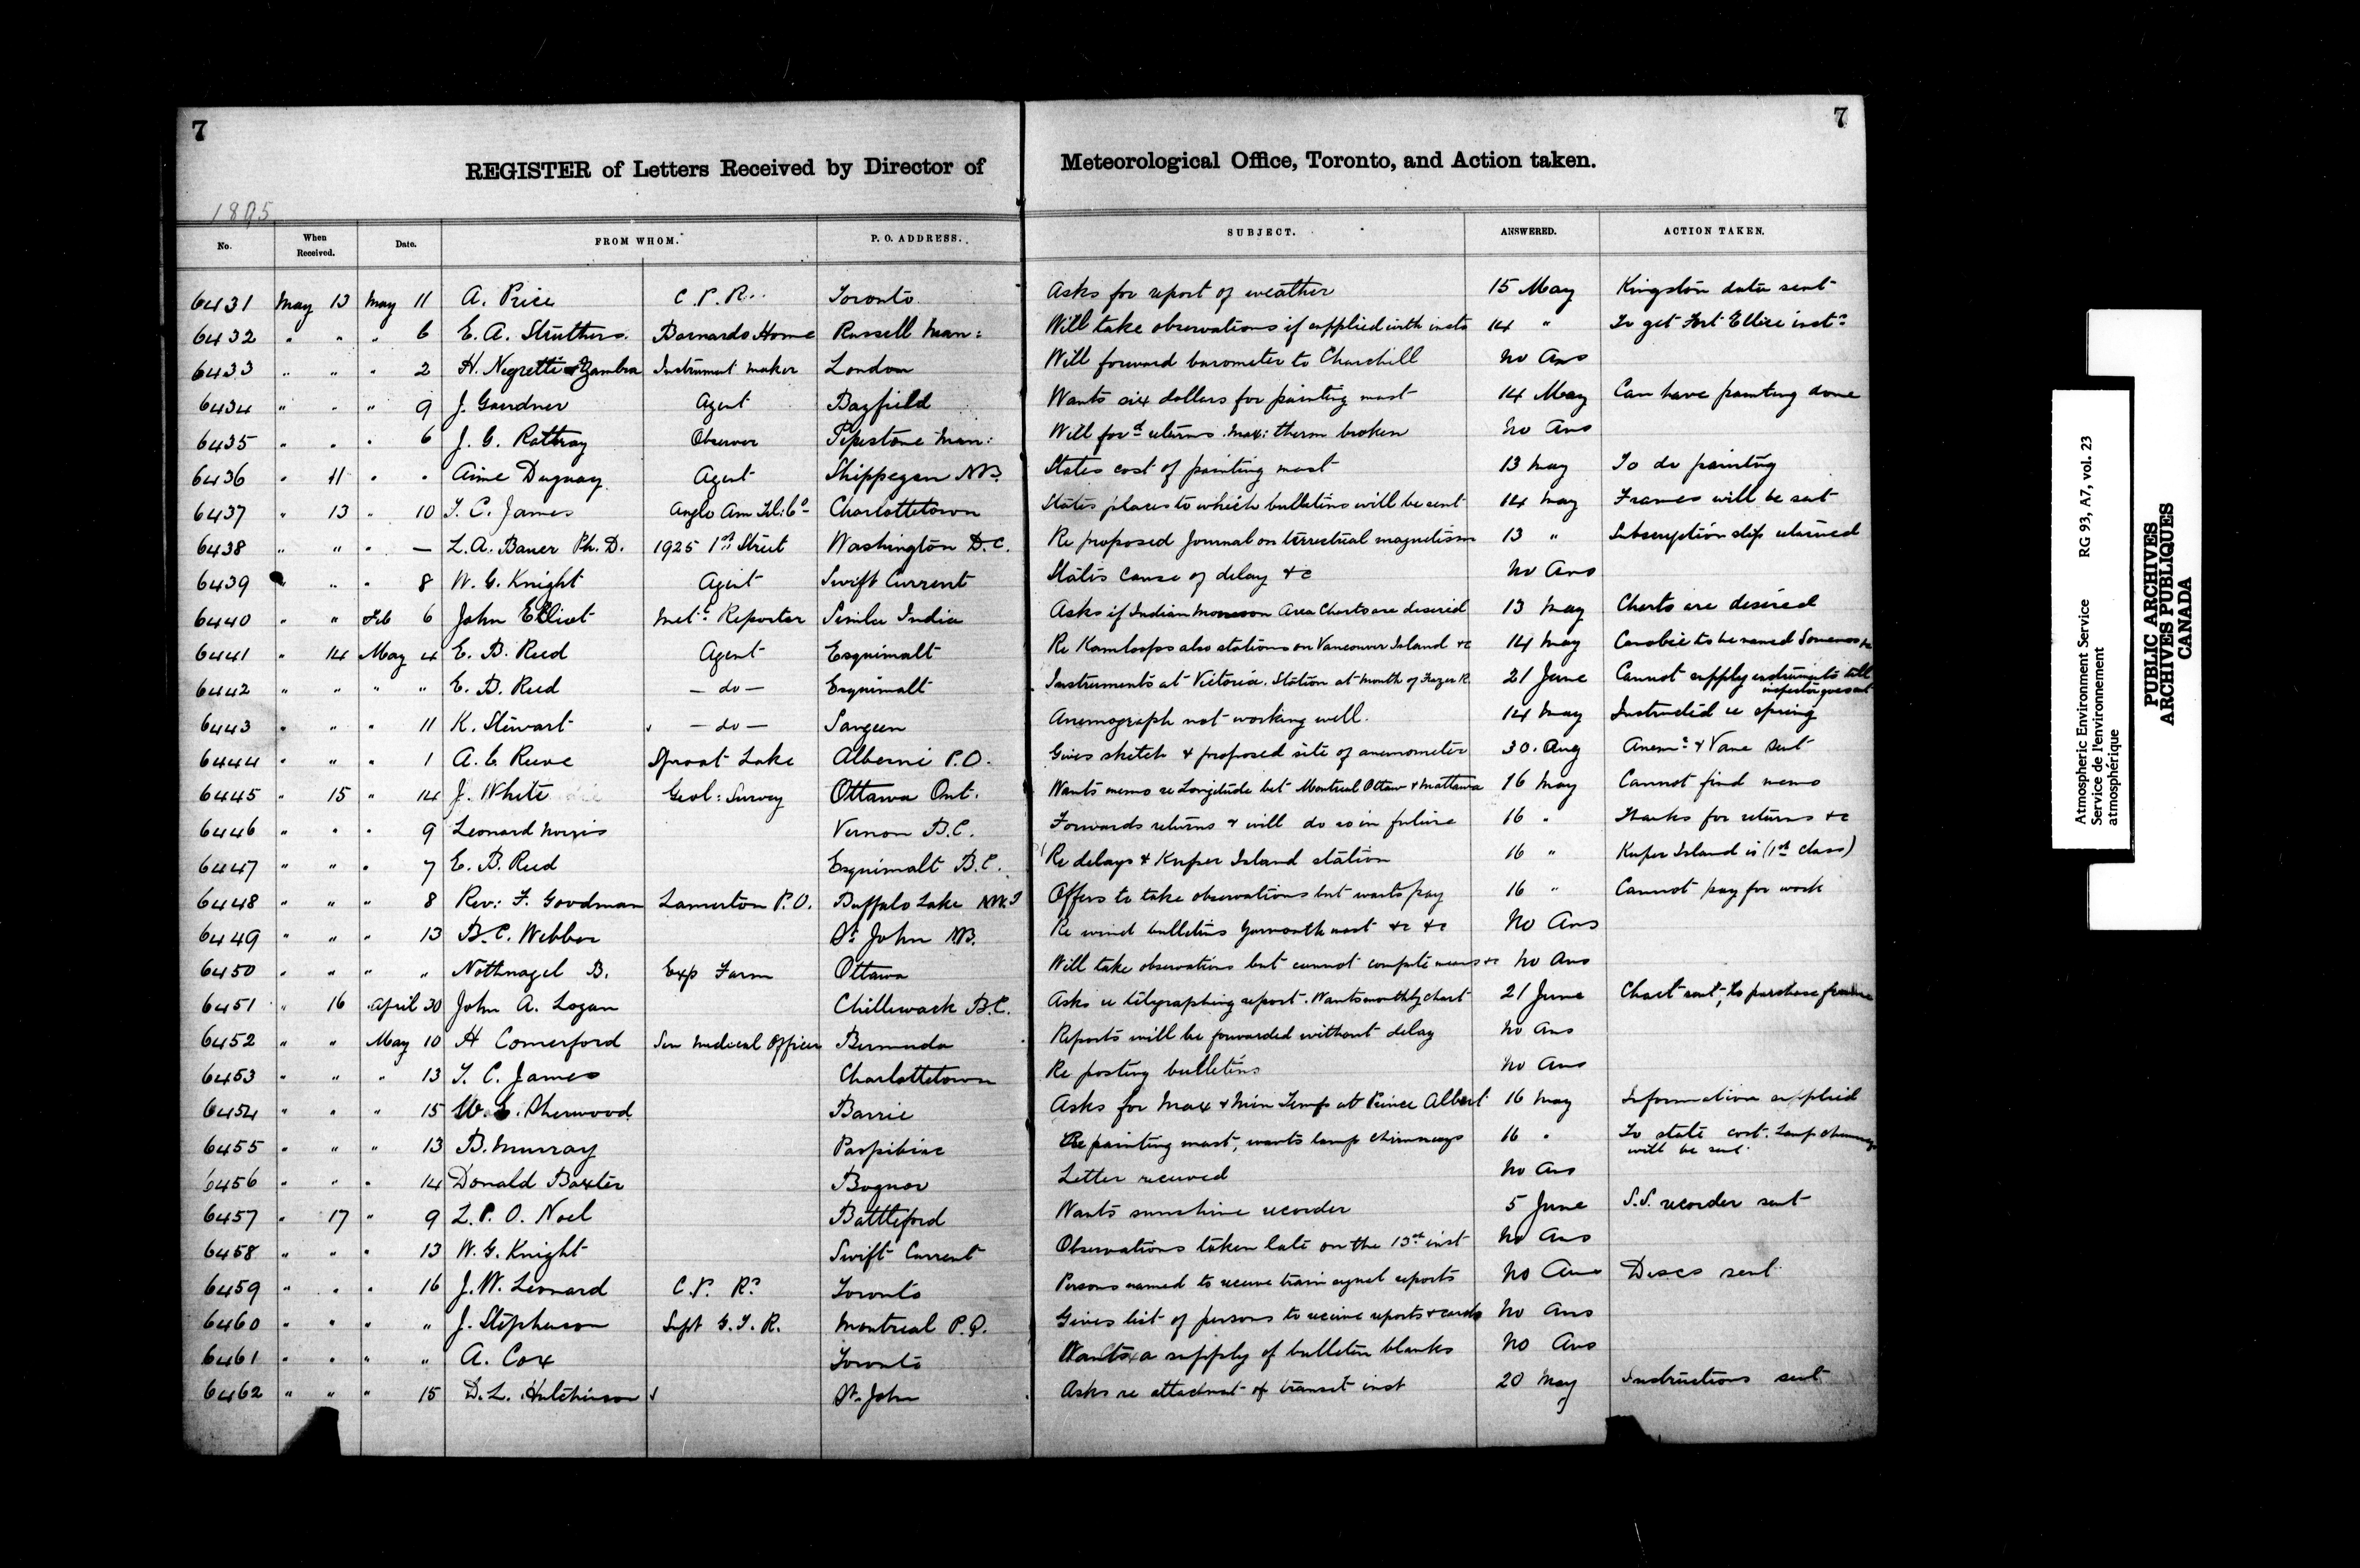 7
7
REGISTER of Letters Received by Director of Meteorological Office, Toronto, and Action taken.
1895
No. When Received. Date. FROM WHOM. P. O. ADDRESS. SUBJECT. ANSWERED. ACTION TAKEN.
6431 May 13 May 11 A. Price C.P.R. Toronto Asks for report of weather 15 May Kingston data sent
6432 " " " 6 E. A. Struthers Barnardo Home Russell Man: Will take observations if supplied with insts 14 " To get Fort Ellice insts
6433 " " " 2 H. Negretti & Zambra Instrument maker London Will forward barometer to Churchill No Ans
6434 " " " 9 J. Gardner Agent Bayfield Wants six dollars for painting mast 14 May Can have painting done
6435 " " " 6 J. G. Rattray Observer Pipestone Man: Will ford returns. Max: therm broken No Ans
6436 " 11 " " Aime Duguay Agent Shippegan N.B. States cost of painting mast 13 May To do painting
6437 " 13 " 10 T. C. James Anglo Am Tel: Co Charlottetown States places to which bulletins will be sent 14 May Frames will be sent
6438 " " " — L. A. Bauer Ph. D. 1925 1st Street Washington D.C. Re proposed Journal on terrestrial magnetism 13 " Subscription slip returned
6439 " " " 8 W. G. Knight Agent Swift Current States cause of delay &c No Ans
6440 " " Feb 6 John Elliot Metl. Reporter Simla India Asks if Indian Monsoon Area Charts are desired 13 May Charts are desired
6441 " 14 May 4 E. B. Reed Agent Esquimalt Re Kamloops also stations on Vancouver Island &c 14 May to be named Somenos &c
6442 " " " " E. B. Reed — do — Esquimalt Instruments at Victoria. Station at mouth of Frazer R. 21 June Cannot supply instruments till inspector goes out
6443 " " " 11 K. Stewart — do — Saugeen Anemograph not working well. 14 May Instructed re spring
6444 " " " 1 A. C. Reeve Sproat Lake Alberni P.O. Gives sketch & proposed site of anemometer 30. Aug Anemr & Vane sent
6445 " 15 " 14 J. White Geol: Survey Ottawa Ont. Wants memo re Longitude bet Montreal Ottaw & Mattawa 16 May Cannot find memo
6446 " " " 9 Leonard Norris Vernon B.C. Forwards returns & will do so in future 16 " Thanks for returns &c
6447 " " " 7 E. B. Reed Esquimalt B.C. Re delays & Kuper Island station 16 " Kuper Island is (1st class)
6448 " " " 8 Rev: F. Goodman Lamerton P.O. Buffalo Lake N.W.T Offers to take observations but wants pay 16 " Cannot pay for work
6449 " " " 13 B. C. Webber St John N.B. Re wind bulletins Yarmouth mast &c &c No Ans
6450 " " " " Nothnagel B. Exp Farm Ottawa Will take observations but cannot compute means &c No Ans
6451 " 16 April 30 John A. Logan Chilliwack B.C. Asks re telegraphing report. Wants monthly chart 21 June Chart sent, to purchase frame
6452 " " May 10 H Comerford Sen Medical Officer Bermuda Reports will be forwarded without delay No Ans
6453 " " " 13 T. C. James Charlottetown Re posting bulletins No Ans
6454 " " " 15 W. E. Sherwood Barrie Asks for Max & Min Temp at Prince Albert 16 May Information supplied
6455 " " " 13 B. Murray Paspibiac Re painting mast, wants lamp chimneys 16 " To state cost. Lamp chimneys will be sent.
6456 " " " 14 Donald Baxter Bognor Letter received No Ans
6457 " 17 " 9 L. P. O. Noel Battleford Wants sunshine recorder 5 June S.S. recorder sent
6458 " " " 13 W. G. Knight Swift Current Observations taken late on the 13th inst No Ans
6459 " " " 16 J. W. Leonard C.P. Ry Toronto Persons named to receive train signal reports No Ans Discs sent
6460 " " " " J. Stephenson Supt G.T.R. Montreal P.Q. Gives list of persons to receive reports & cards No Ans
6461 " " " " A. Cox Toronto Wants a supply of bulletin blanks No Ans
6462 " " " 15 D. L. Hutchinson St. John Asks re attachmt of transit inst 20 May Instructions sent
Atmospheric Environment Service RG 93, A7, vol. 23
Service de l'environnement
atmosphérique
PUBLIC ARCHIVES
ARCHIVES PUBLIQUES
CANADA